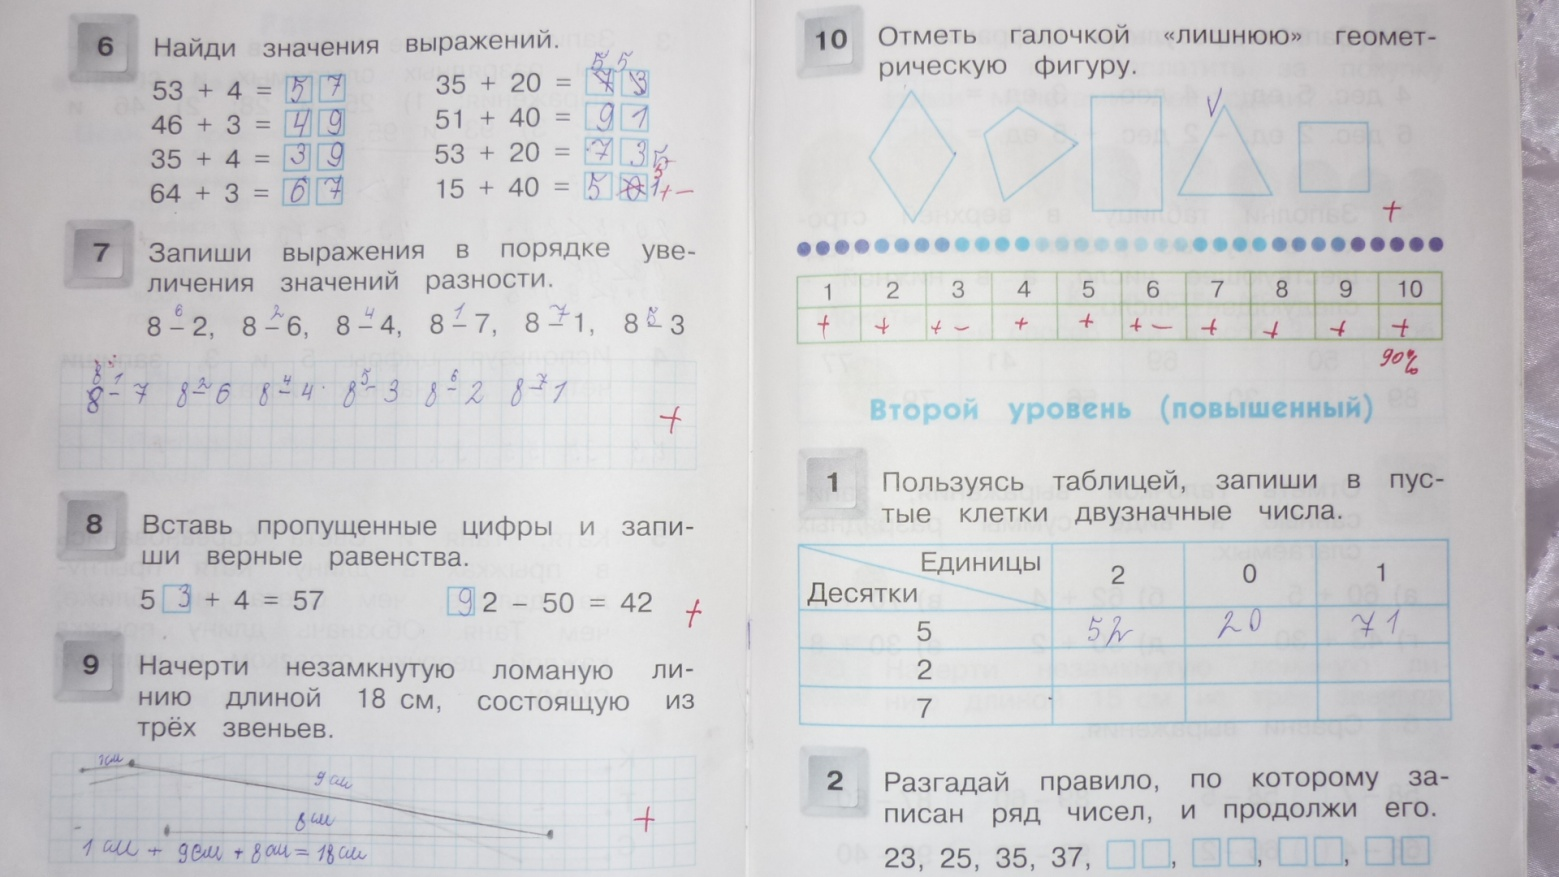 6 Найди значения выражений.
53 + 4 = 57
46 + 3 = 49
35 + 4 = 39
64 + 3 = 67
55
35 + 20 = 73
51 + 40 = 91
53 + 20 = 73
15 + 40 = 5
+ −
7 Запиши выражения в порядке уве-
личения значений разности.
6 2 4 1 7 5
8 − 2, 8 − 6, 8 − 4, 8 − 7, 8 − 1, 8 − 3
1 2 4 5 6 7
8 − 7 8 − 6 8 − 4 8 − 3 8 − 2 8 − 1
+
8 Вставь пропущенные цифры и запи-
ши верные равенства.
53 + 4 = 57 92 − 50 = 42 +
9 Начерти незамкнутую ломаную ли-
нию длиной 18 см, состоящую из
трёх звеньев.
1см
9 см
8см
+
1 см + 9см + 8см = 18см
10 Отметь галочкой «лишнюю» геомет-
рическую фигуру.
+
1 2 3 4 5 6 7 8 9 10
+ + + − + + + − + + + +
90%
Второй уровень (повышенный)
1 Пользуясь таблицей, запиши в пус-
тые клетки двузначные числа.
Единицы
Десятки 2 0 1
5 52 20 71
2
7
2 Разгадай правило, по которому за-
писан ряд чисел, и продолжи его.
23, 25, 35, 37, , , ,